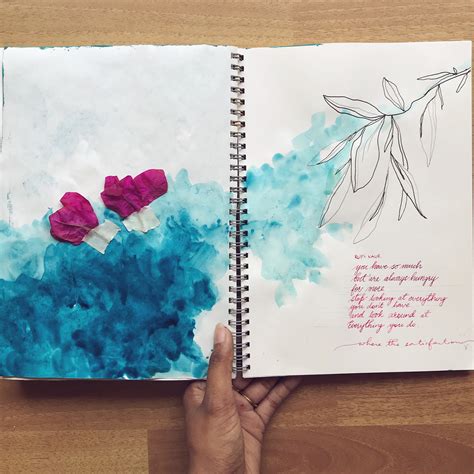 RUPI KAUR
you have so much
but are always hungry
for more
stop looking at everything
you don't have
and look around at
everything you do
where the satisfaction